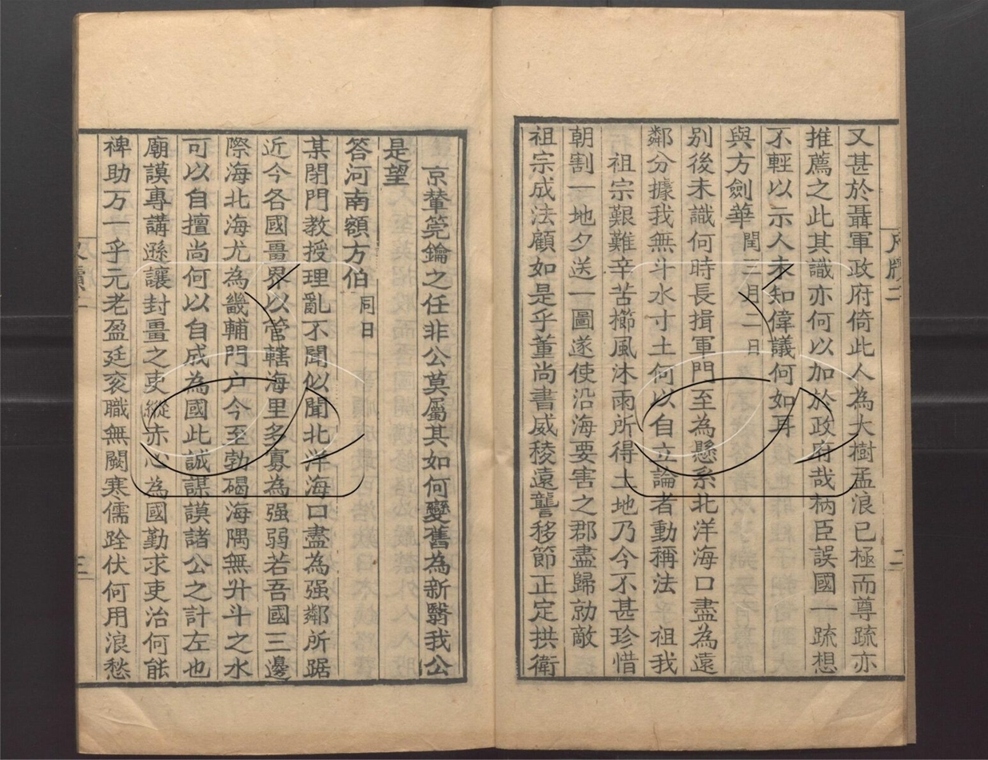 又甚於聶軍政府倚此人為大樹孟浪已極而尊疏亦
推薦之此其識亦何以加於政府哉柄臣誤國一疏想
不輕以示人未知偉議何如耳
與方劍華 閏三月二日
別後未識何時長揖軍門至為懸系北洋海口盡為遠
鄰分據我無斗水寸土何以自立論者動稱法 祖我
祖宗艱難辛苦櫛風沐雨所得土地乃今不甚珍惜
朝割一地夕送一圖遂使沿海要害之郡盡歸勍敵
祖宗成法顧如是乎董尚書威稜遠讋移節正定拱衛
京輦筦鑰之任非公莫屬其如何變舊為新翳我公
是望
答河南額方伯 同日
某閉門教授理亂不聞似聞北洋海口盡為强鄰所踞
近今各國畺界以管轄海里多寡為强弱若吾國三邊
際海北海尤為畿輔門户今至勃碣海隅無升斗之水
可以自擅尚何以自成為國此誠謀謨諸公之計左也
廟謨專講遜讓封畺之吏縱赤心為國勤求吏治何能
裨助万一乎元老盈廷衮職無闕寒儒跧伏何用浪愁
二
三